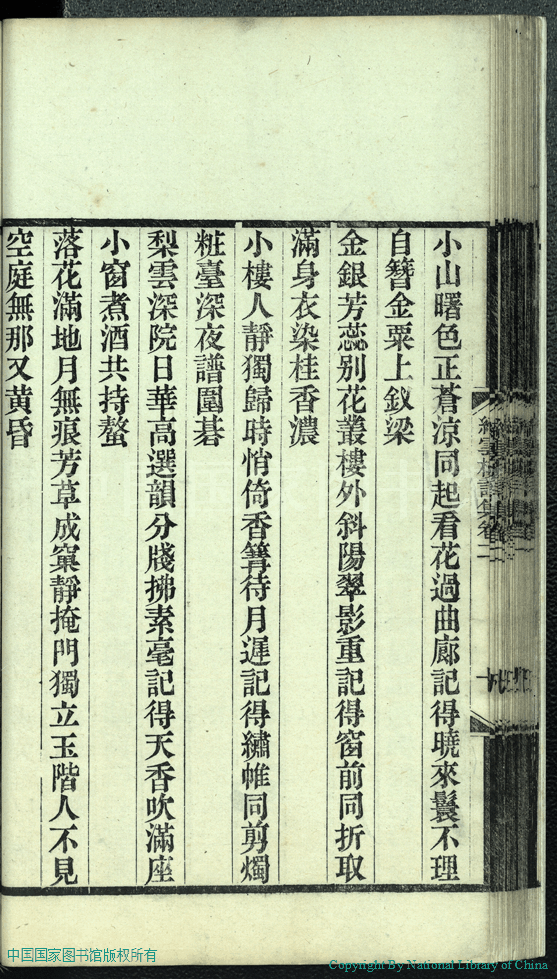 小山曙色正蒼涼同起看花過曲廊記得曉來鬟不理
自簪金粟上釵梁
金銀芳蕊別花叢樓外斜陽翠影重記得窗前同折取
滿身衣染桂香濃
小樓人靜獨歸時悄倚香篝待月遲記得繡帷同剪燭
粧臺深夜譜圍棊
梨雲深院日華高選韻分牋拂素毫記得天香吹滿座
小窗煮酒共持螯
落花滿地月無痕芳草成窠靜掩門獨立玉階人不見
空庭無那又黄昏
中国国家图书馆版权所有
Copyright By National Library of China